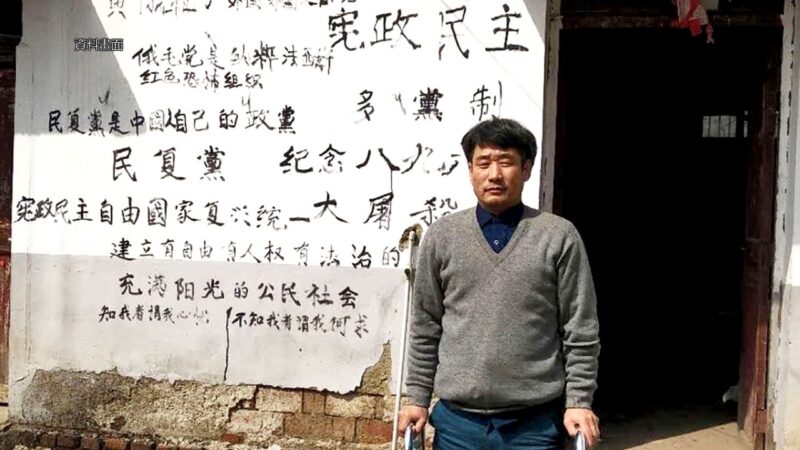 資料畫面
宪政民主
俄毛党是纳粹法西斯
红色恐怖组织
民复黨是中國人自己的政黨
多黨制
民复黨
纪念八九
宪政民主自由國家复兴统一
大屠殺
建立有自由有人权有法治的
充满阳光的公民社会
知我者謂我心忧 不知我者謂我何求